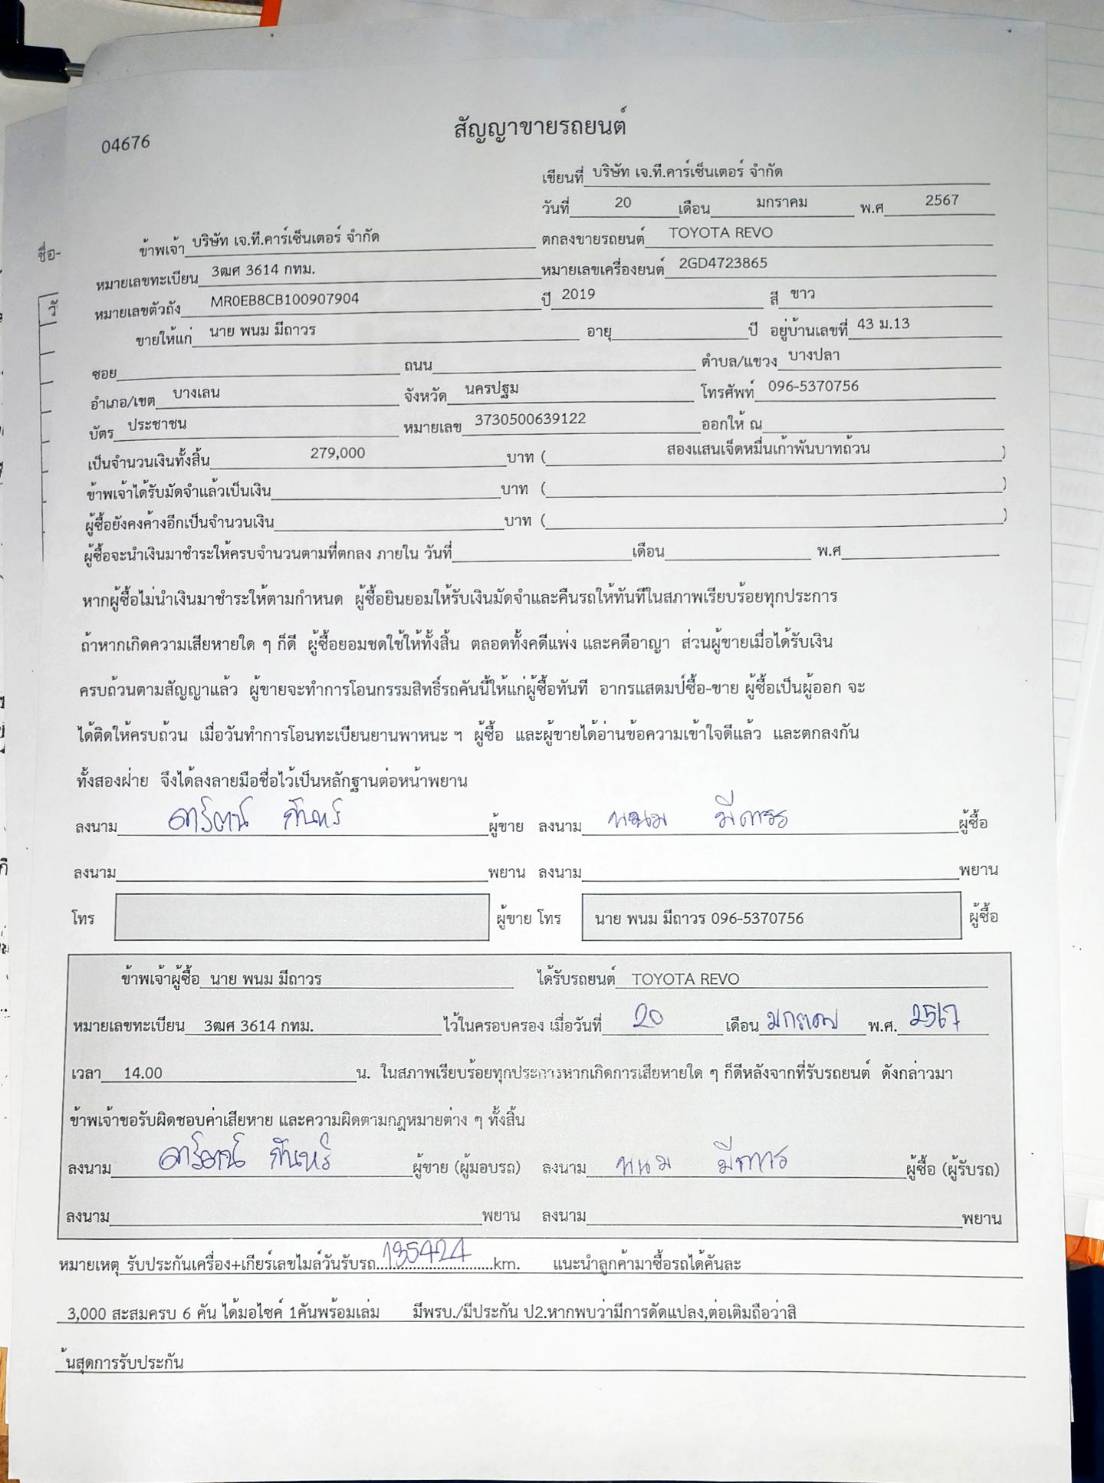 สัญญาขายรถยนต์
04676
เขียนที่ บริษัท เจ.ที.คาร์เซ็นเตอร์ จำกัด
วันที่ 20 เดือน มกราคม พ.ศ 2567
ข้าพเจ้า บริษัท เจ.ที.คาร์เซ็นเตอร์ จำกัด ตกลงขายรถยนต์ TOYOTA REVO
หมายเลขทะเบียน 3ฒศ 3614 กทม. หมายเลขเครื่องยนต์ 2GD4723865
หมายเลขตัวถัง MR0EB8CB100907904 ปี 2019 สี ขาว
ขายให้แก่ นาย พนม มีถาวร อายุ ปี อยู่บ้านเลขที่ 43 ม.13
ซอย ถนน ตำบล/แขวง บางปลา
อำเภอ/เขต บางเลน จังหวัด นครปฐม โทรศัพท์ 096-5370756
บัตร ประชาชน หมายเลข 3730500639122 ออกให้ ณ
เป็นจำนวนเงินทั้งสิ้น 279,000 บาท ( สองแสนเจ็ดหมื่นเก้าพันบาทถ้วน )
ข้าพเจ้าได้รับมัดจำแล้วเป็นเงิน บาท ( )
ผู้ซื้อยังคงค้างอีกเป็นจำนวนเงิน บาท ( )
ผู้ซื้อจะนำเงินมาชำระให้ครบจำนวนตามที่ตกลง ภายใน วันที่ เดือน พ.ศ
หากผู้ซื้อไม่นำเงินมาชำระให้ตามกำหนด ผู้ซื้อยินยอมให้รับเงินมัดจำและคืนรถให้ทันทีในสภาพเรียบร้อยทุกประการ
ถ้าหากเกิดความเสียหายใด ๆ ก็ดี ผู้ซื้อยอมชดใช้ให้ทั้งสิ้น ตลอดทั้งคดีแพ่ง และคดีอาญา ส่วนผู้ขายเมื่อได้รับเงิน
ครบถ้วนตามสัญญาแล้ว ผู้ขายจะทำการโอนกรรมสิทธิ์รถคันนี้ให้แก่ผู้ซื้อทันที อากรแสตมป์ซื้อ-ขาย ผู้ซื้อเป็นผู้ออก จะ
ได้ติดให้ครบถ้วน เมื่อวันทำการโอนทะเบียนยานพาหนะ ฯ ผู้ซื้อ และผู้ขายได้อ่านข้อความเข้าใจดีแล้ว และตกลงกัน
ทั้งสองฝ่าย จึงได้ลงลายมือชื่อไว้เป็นหลักฐานต่อหน้าพยาน
ลงนาม ผู้ขาย ลงนาม พนม มีถาวร ผู้ซื้อ
ลงนาม พยาน ลงนาม พยาน
โทร ผู้ขาย โทร นาย พนม มีถาวร 096-5370756 ผู้ซื้อ
ข้าพเจ้าผู้ซื้อ นาย พนม มีถาวร ได้รับรถยนต์ TOYOTA REVO
หมายเลขทะเบียน 3ฒศ 3614 กทม. ไว้ในครอบครอง เมื่อวันที่ 20 เดือน มกราคม พ.ศ. 2567
เวลา 14.00 น. ในสภาพเรียบร้อยทุกประการหากเกิดการเสียหายใด ๆ ก็ดีหลังจากที่รับรถยนต์ ดังกล่าวมา
ข้าพเจ้าขอรับผิดชอบค่าเสียหาย และความผิดตามกฎหมายต่าง ๆ ทั้งสิ้น
ลงนาม ผู้ขาย (ผู้มอบรถ) ลงนาม พนม มีถาวร ผู้ซื้อ (ผู้รับรถ)
ลงนาม พยาน ลงนาม พยาน
หมายเหตุ รับประกันเครื่อง+เกียร์เลขไมล์วันรับรถ...195424...km. แนะนำลูกค้ามาซื้อรถได้คันละ
3,000 สะสมครบ 6 คัน ได้มอไซค์ 1คันพร้อมเล่ม มีพรบ./มีประกัน ป2.หากพบว่ามีการดัดแปลง,ต่อเติมถือว่าสิ
้นสุดการรับประกัน